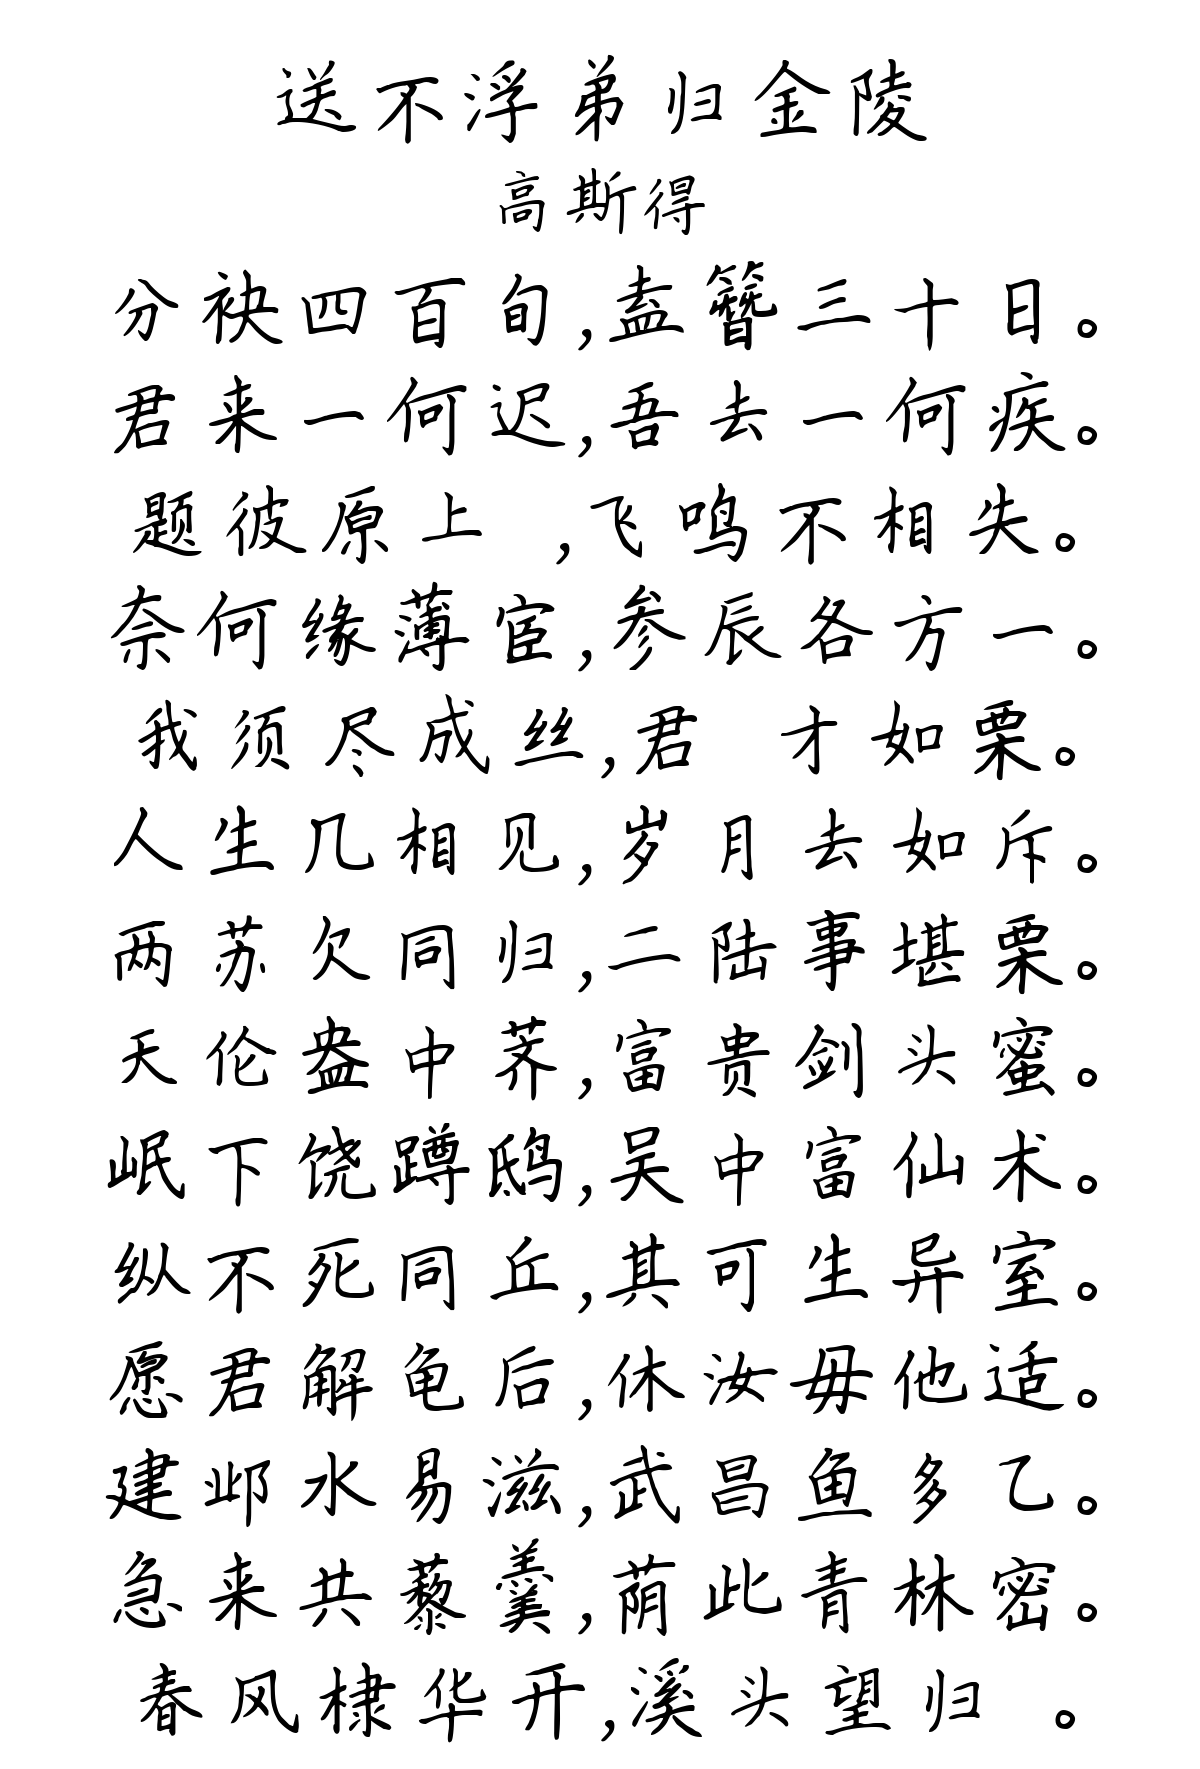 送不浮弟归金陵
高斯得
分袂四百旬,盍簪三十日。
君来一何迟,吾去一何疾。
题彼原上 ,飞鸣不相失。
奈何缘薄宦,参辰各方一。
我须尽成丝,君 才如栗。
人生几相见,岁月去如斥。
两苏欠同归,二陆事堪栗。
天伦盎中荞,富贵剑头蜜。
岷下饶蹲鸱,吴中富仙术。
纵不死同丘,其可生异室。
愿君解龟后,休汝毋他适。
建邺水易滋,武昌鱼多乙。
急来共藜羹,荫此青林密。
春风棣华开,溪头望归 。